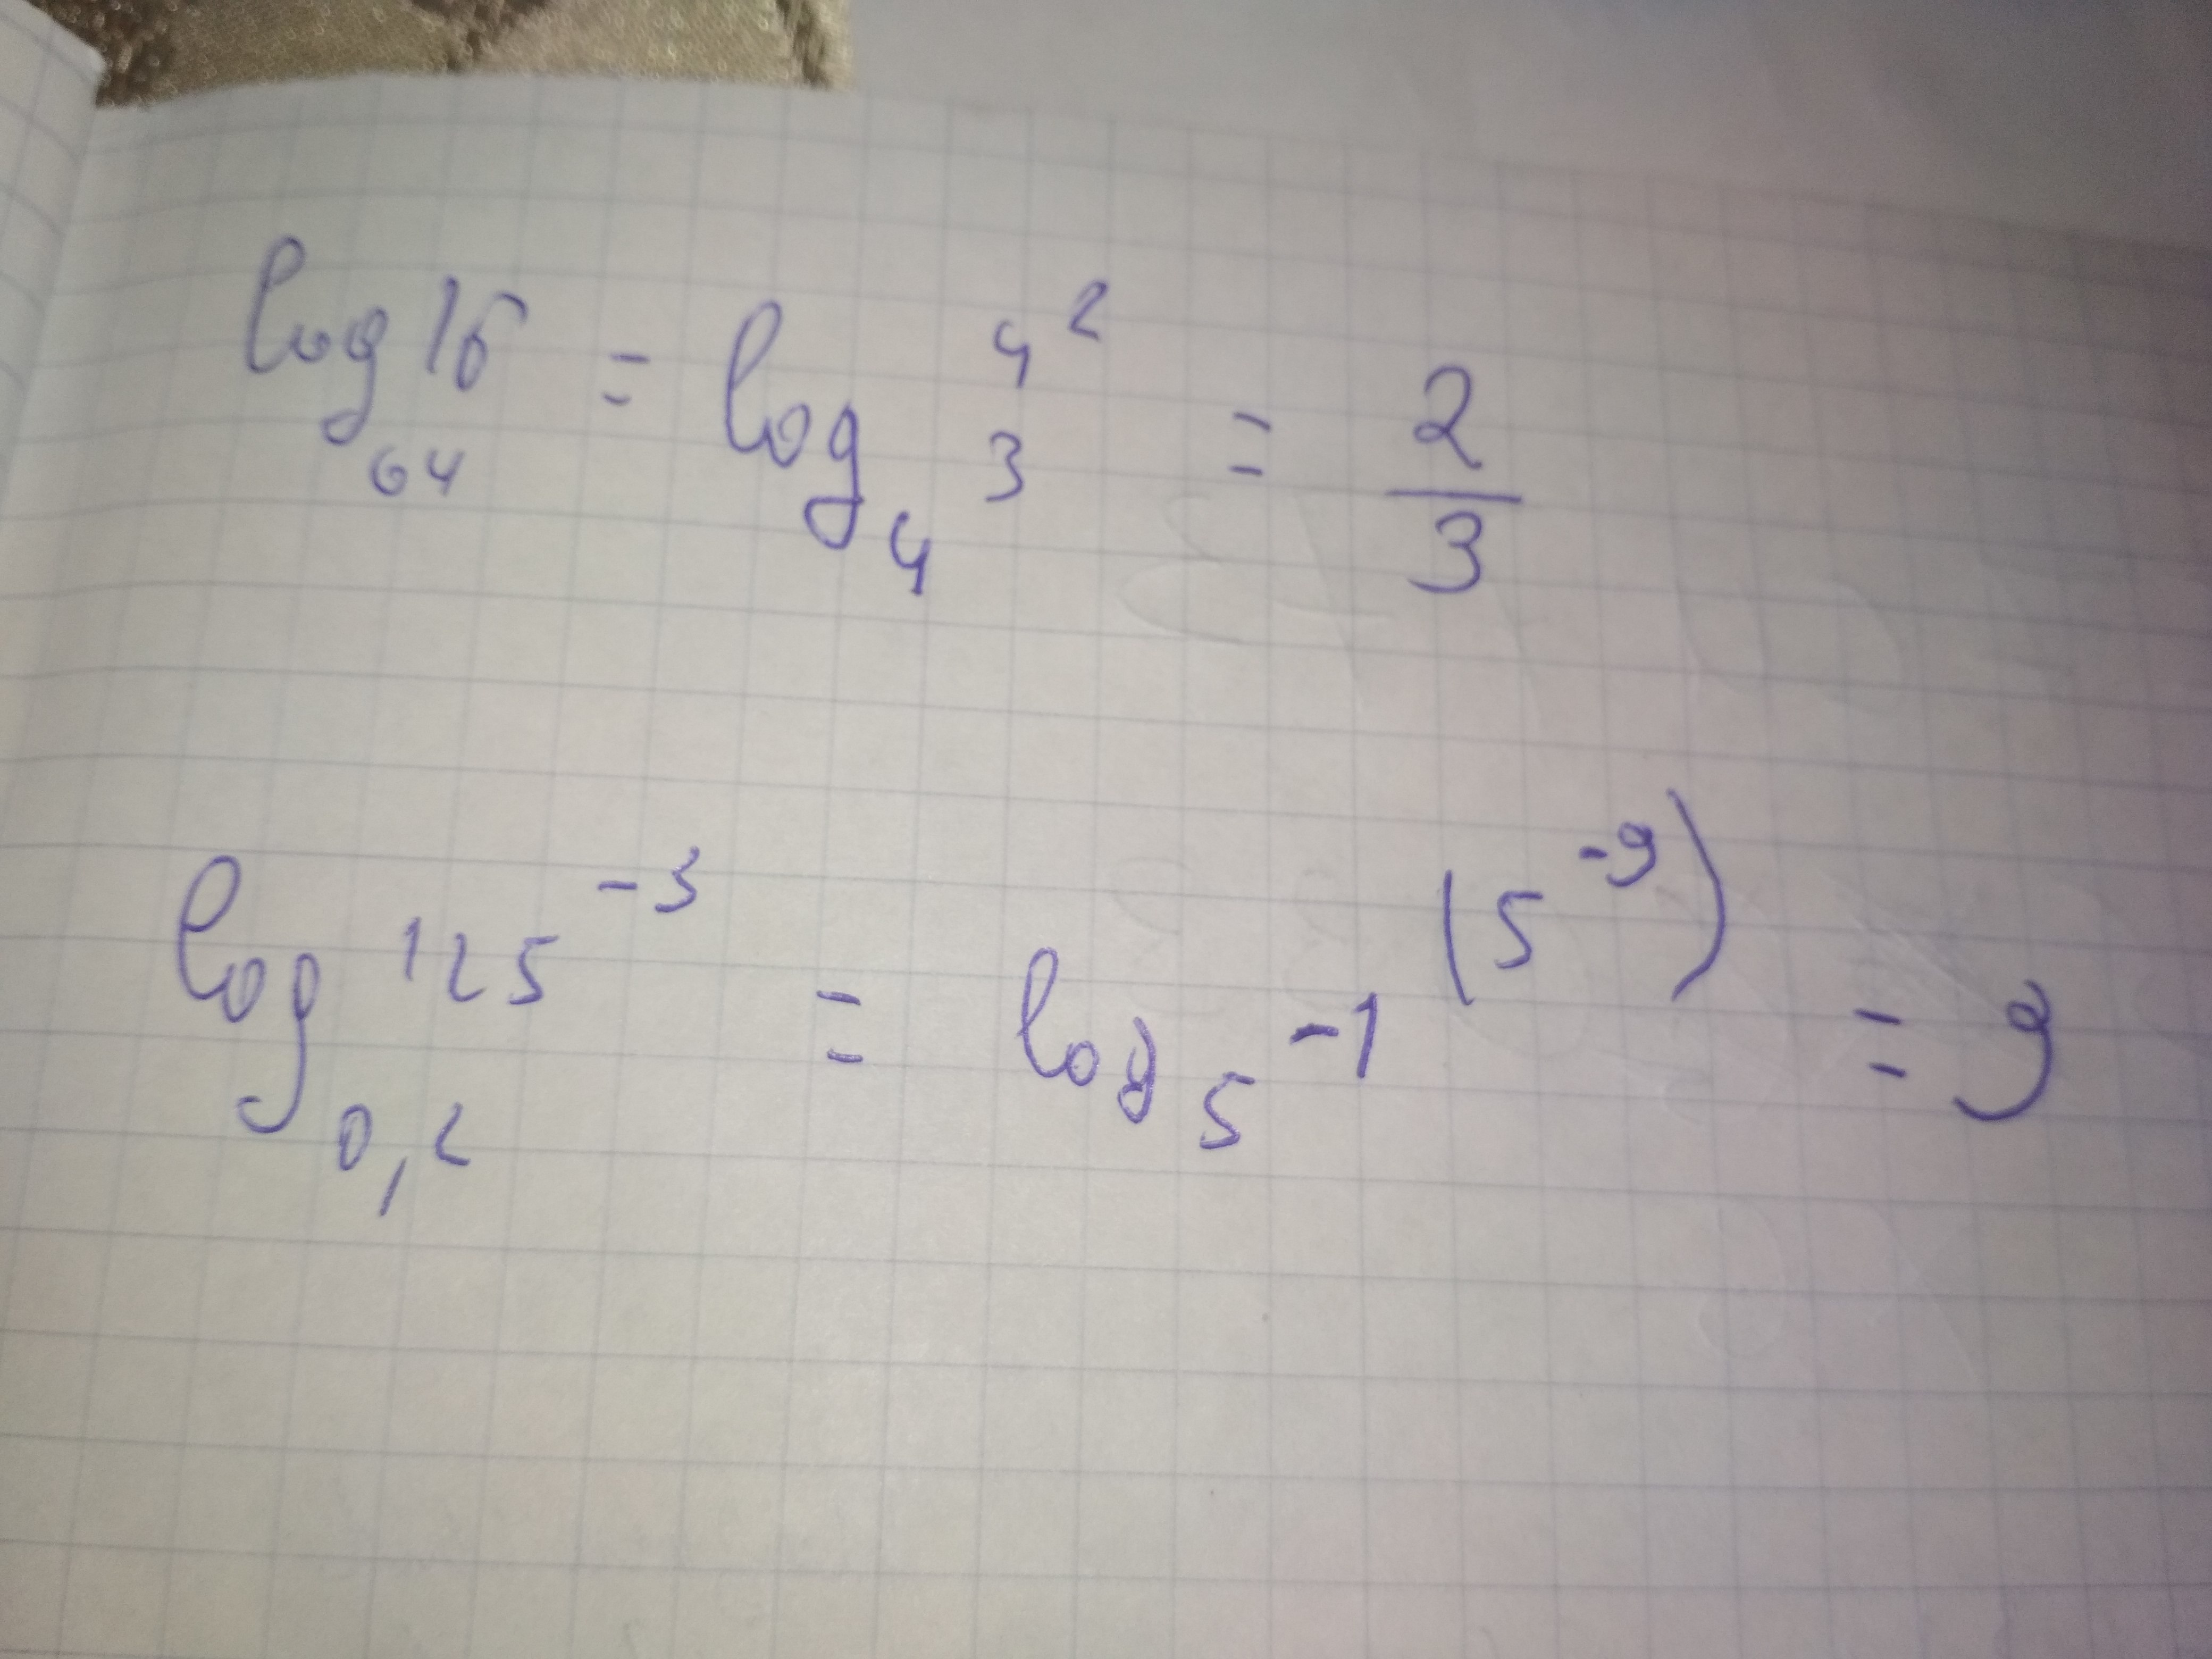 log₆₄ 16 = log₄³ 4² = 2/3
log₀,₂ 125⁻³ = log₅⁻¹ (5⁻⁹) = 9